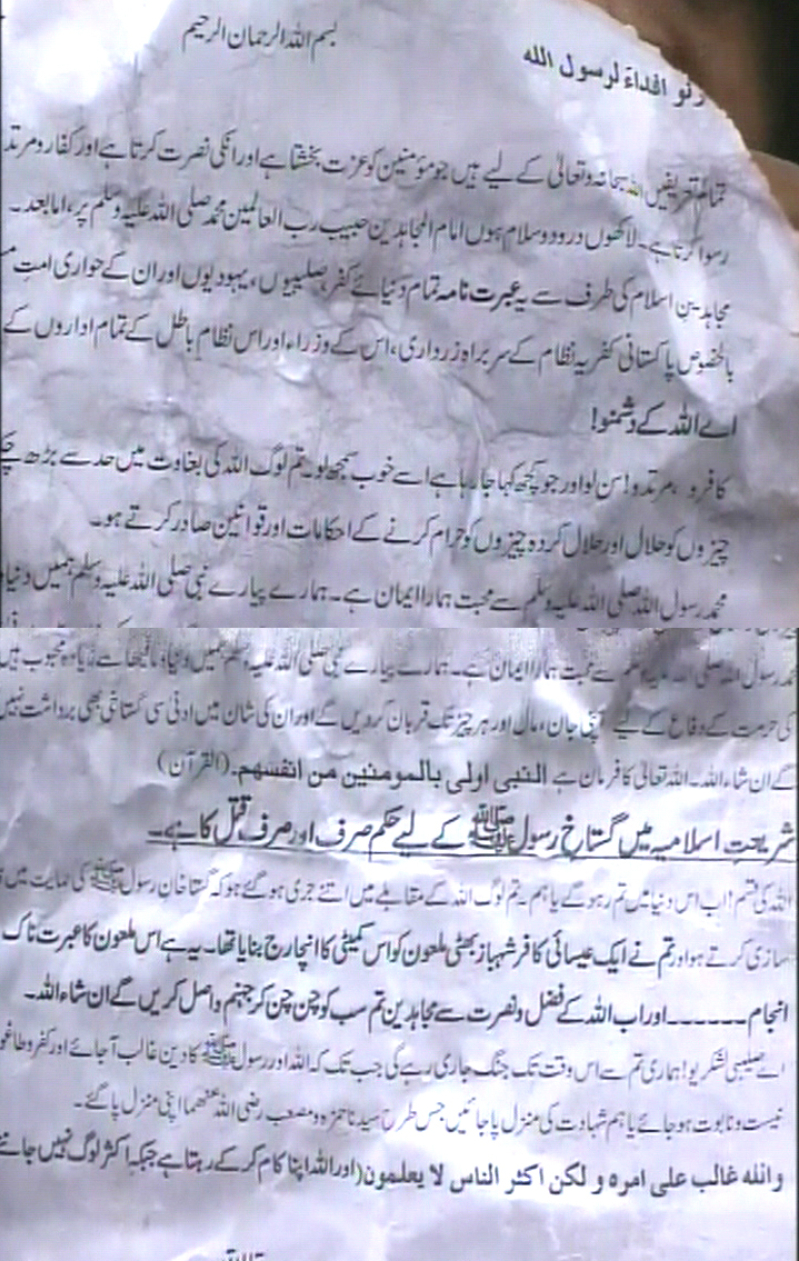 بسم اللہ الرحمان الرحیم
افداءً لرسول الله
تمام تعریفیں اللہ سبحانہ وتعالٰی کے لیے ہیں جو مؤمنین کو عزت بخشتا ہے اور انکی نصرت کرتا ہے اور کفار و مرتد
رسوا کرتا ہے۔ لاکھوں درود و سلام ہوں امام المجاہدین حبیب رب العالمین محمد صلی اللہ علیہ وسلم پر، اما بعد۔
مجاہدینِ اسلام کی طرف سے یہ عبرت نامہ تمام دنیائے کفر، صلیبیوں، یہودیوں اور ان کے حواری امتِ
بالخصوص پاکستانی کفریہ نظام کے سربراہ زرداری، اس کے وزراء اور اس نظام باطل کے تمام اداروں کے
اے اللہ کے دشمنو!
کافرو، مرتدو! سن لو اور جو کچھ کہا جا رہا ہے اسے خوب سمجھ لو۔ تم لوگ اللہ کی بغاوت میں حد سے بڑھ چکے
چیزوں کو حلال اور حلال کردہ چیزوں کو حرام کرنے کے احکامات اور قوانین صادر کرتے ہو۔
محمد رسول اللہ صلی اللہ علیہ وسلم سے محبت ہمارا ایمان ہے۔ ہمارے پیارے نبی صلی اللہ علیہ وسلم ہمیں دنیا و
محمد رسول اللہ صلی اللہ علیہ وسلم سے محبت ہمارا ایمان ہے۔ ہمارے پیارے نبی صلی اللہ علیہ وسلم ہمیں دنیا و مافیھا سے زیادہ محبوب ہیں
کی حرمت کے دفاع کے لیے اپنی جان، مال اور ہر چیز تک قربان کر دیں گے اور ان کی شان میں ادنٰی سی گستاخی بھی برداشت نہیں
گے ان شاء اللہ۔ اللہ تعالٰی کا فرمان ہے النبی اولی بالمومنین من انفسھم۔ (القرآن)
شریعتِ اسلامیہ میں گستاخِ رسول ﷺ کے لیے حکم صرف اور صرف قتل کا ہے۔
اللہ کی قسم! اب اس دنیا میں تم رہو گے یا ہم۔ تم لوگ اللہ کے مقابلے میں اتنے جری ہو گئے ہو کہ گستاخان رسول ﷺ کی حمایت میں
سازی کرتے ہو اور تم نے ایک عیسائی کافر شہباز بھٹی ملعون کو اس کمیٹی کا انچارج بنایا تھا۔ یہ ہے اس ملعون کا عبرت ناک
انجام ۔۔۔۔۔۔۔ اور اب اللہ کے فضل و نصرت سے مجاہدین تم سب کو چن چن کر جہنم واصل کریں گے ان شاء اللہ۔
اے صلیبی لشکریو! ہماری تم سے اس وقت تک جنگ جاری رہے گی جب تک کہ اللہ اور رسول ﷺ کا دین غالب آ جائے اور کفر و طاغو
نیست و نابود ہو جائے یا ہم شہادت کی منزل پا جائیں جس طرح سیدنا حمزہ و مصعب رضی اللہ عنھما اپنی منزل پا گئے۔
والله غالب علی امره و لکن اکثر الناس لا یعلمون (اور اللہ اپنا کام کر کے رہتا ہے جبکہ اکثر لوگ نہیں جانتے